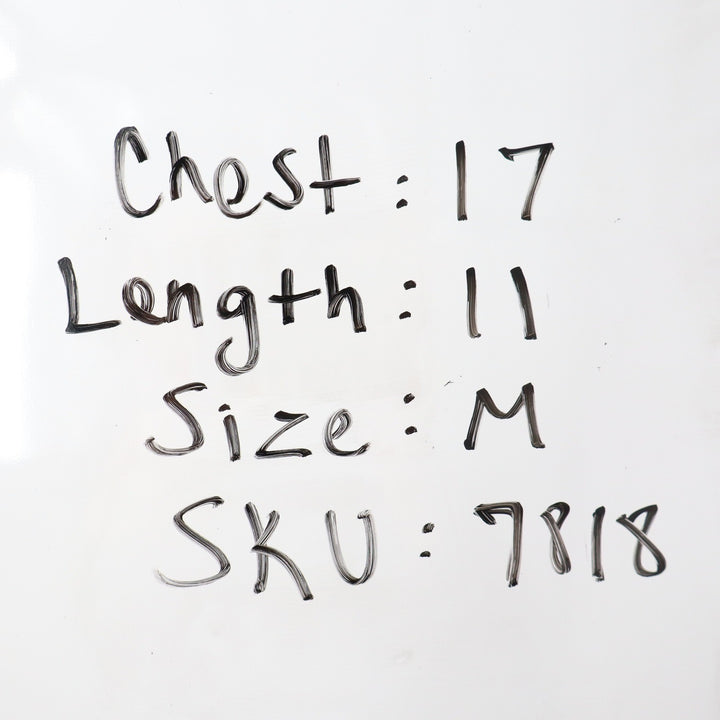 Chest: 17
Length: 11
Size: M
SKU: 7818